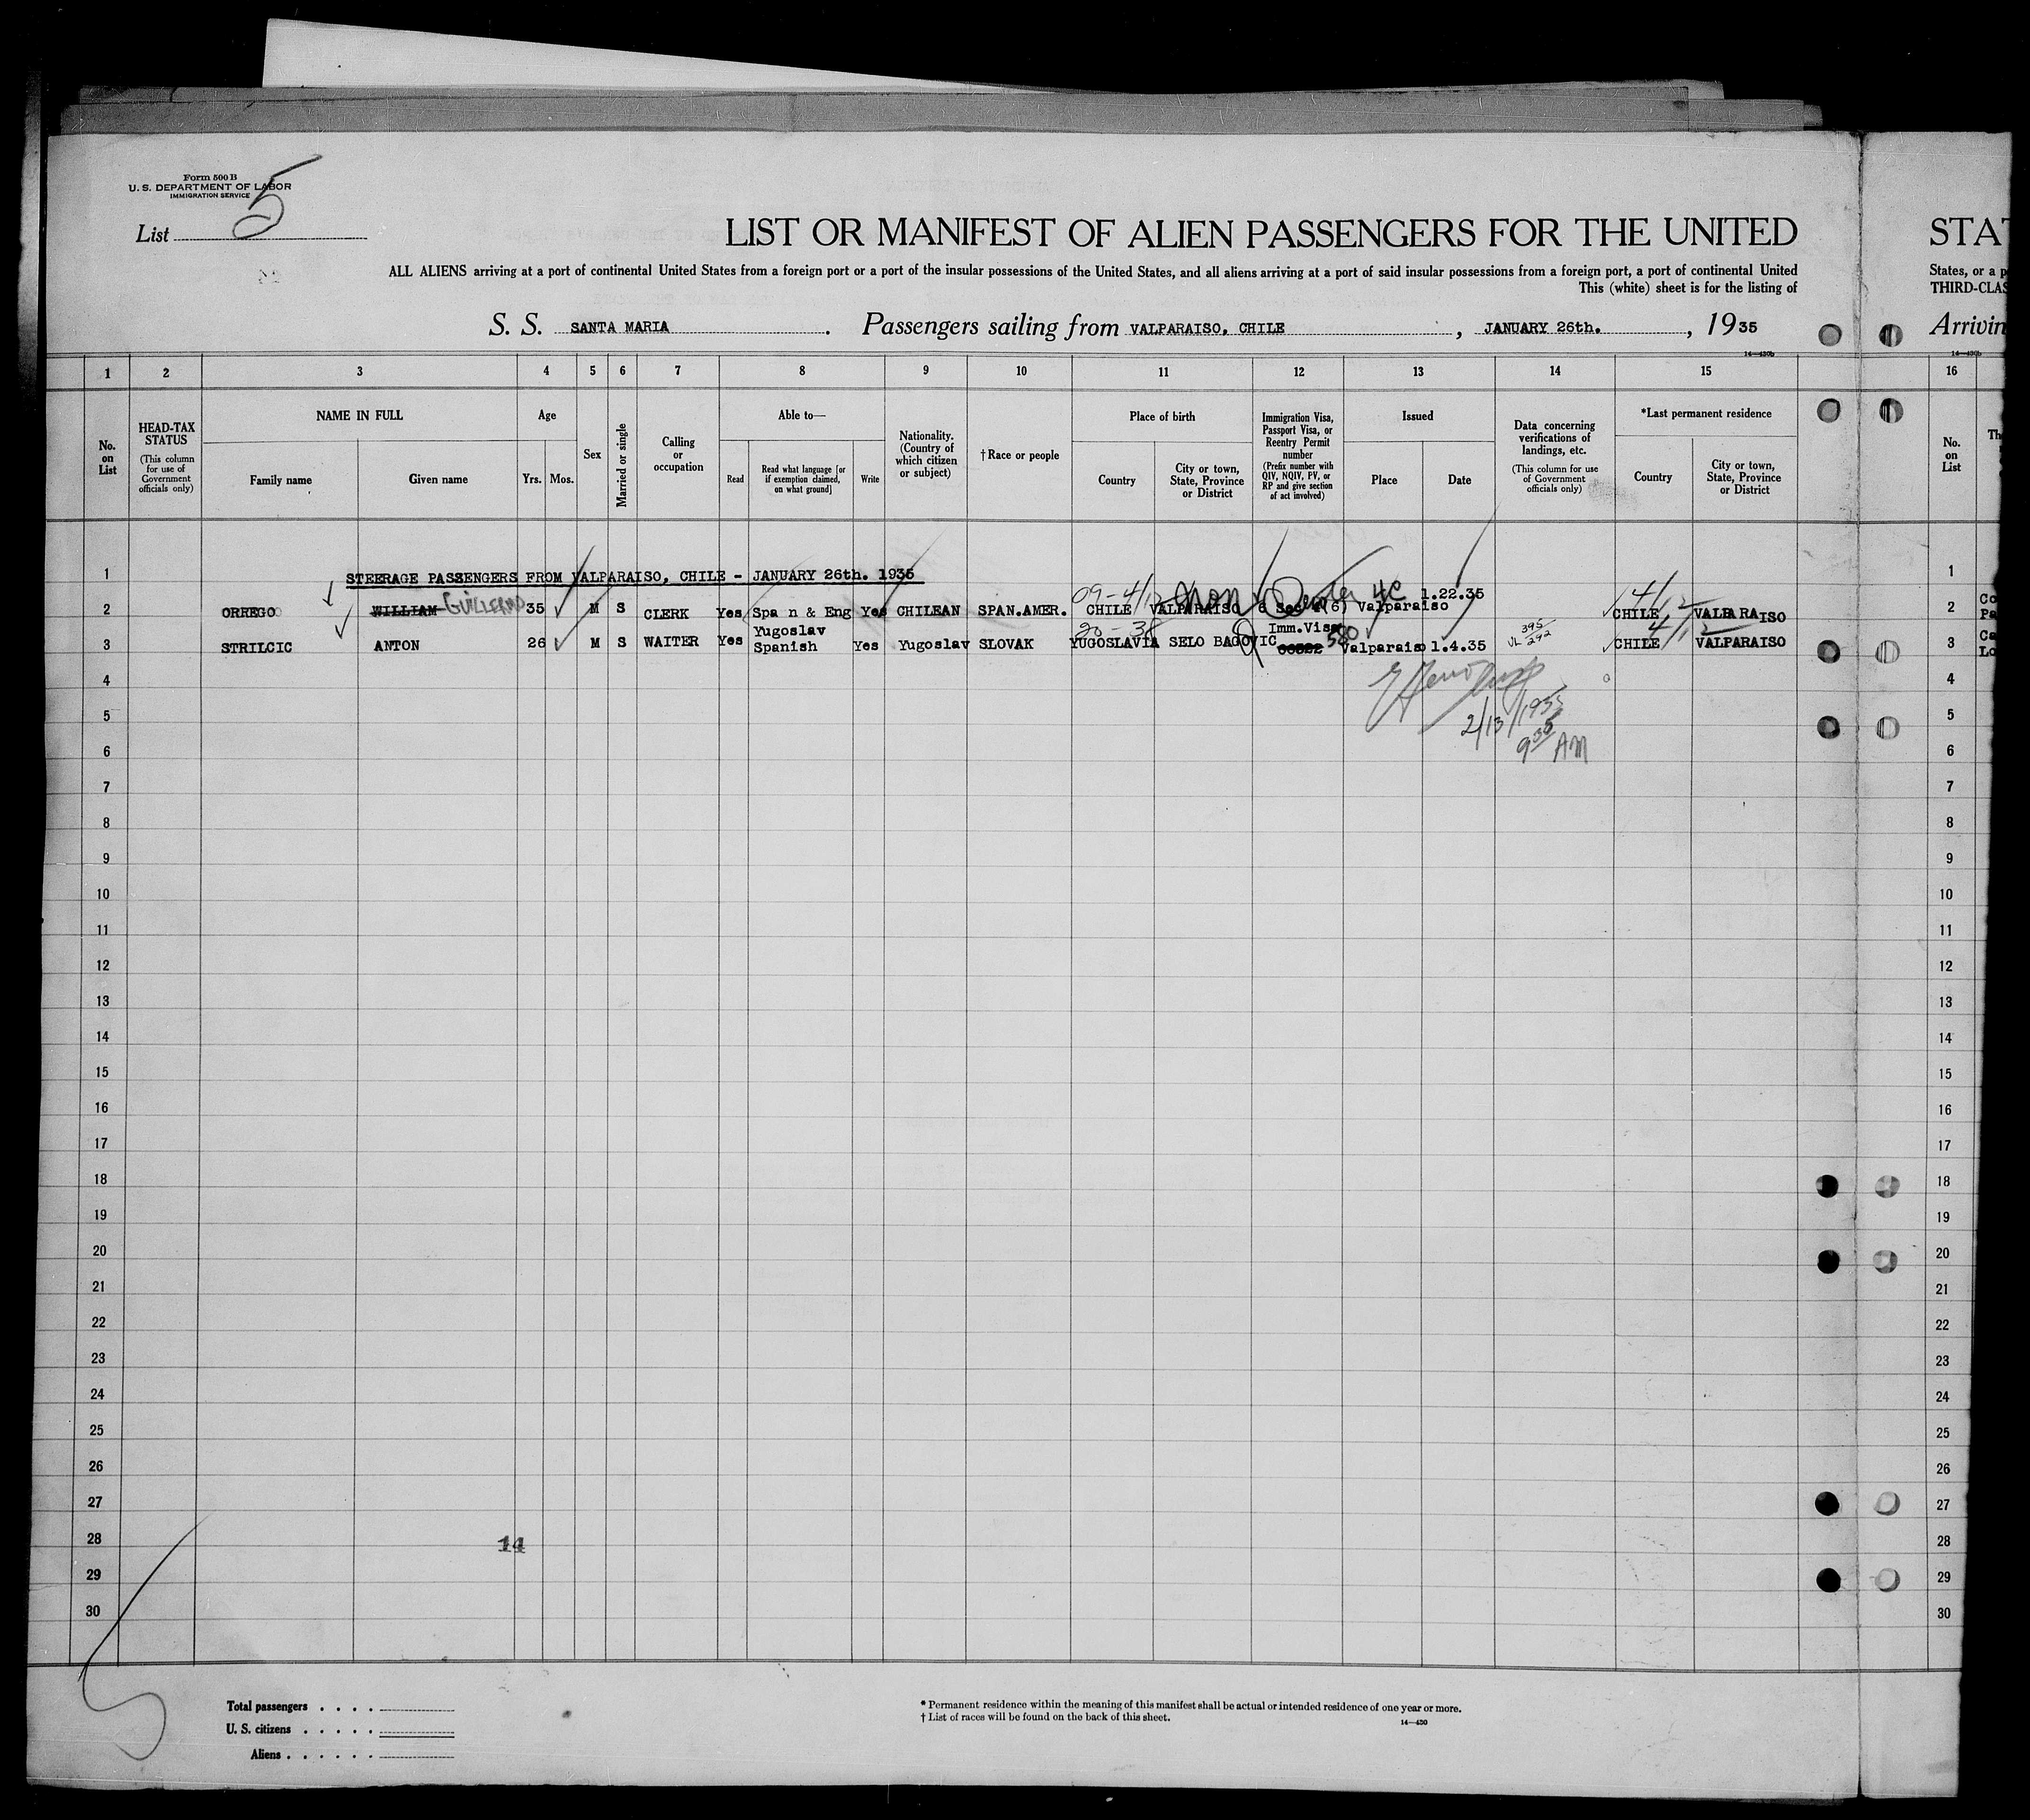 Form 500 B
U. S. DEPARTMENT OF LABOR
IMMIGRATION SERVICE
List 5
LIST OR MANIFEST OF ALIEN PASSENGERS FOR THE UNITED
STA
ALL ALIENS arriving at a port of continental United States from a foreign port or a port of the insular possessions of the United States, and all aliens arriving at a port of said insular possessions from a foreign port, a port of continental United
States, or a p
This (white) sheet is for the listing of
THIRD-CLAS
S. S. SANTA MARIA. Passengers sailing from VALPARAISO, CHILE, JANUARY 26th., 1935
Arrivin
14—430b
1 2 3 4 5 6 7 8 9 10 11 12 13 14 15 16
No. on List
HEAD-TAX STATUS
(This column for use of Government officials only)
NAME IN FULL
Family name
Given name
Age
Yrs. Mos.
Sex
Married or single
Calling or occupation
Able to—
Read
Read what language [or if exemption claimed, on what ground]
Write
Nationality. (Country of which citizen or subject)
†Race or people
Place of birth
Country
City or town, State, Province or District
Immigration Visa, Passport Visa, or Reentry Permit number
(Prefix number with QIV, NQIV, PV, or RP and give section of act involved)
Issued
Place
Date
Data concerning verifications of landings, etc.
(This column for use of Government officials only)
*Last permanent residence
Country
City or town, State, Province or District
No. on List
Th
1 STEERAGE PASSENGERS FROM VALPARAISO, CHILE - JANUARY 26th. 1935 1
09-4/12 4C 1.22.35 4/12
2 ORREGO WILLIAM GUILLERMO 35 M S CLERK Yes Spa n & Eng Yes CHILEAN SPAN.AMER. CHILE VALPARAISO 6 Sec 4(6) Valparaiso CHILE VALPARAISO 2 Co
Pa
Yugoslav 20-38 Imm.Visa 580 395 4/12
3 STRILCIC ANTON 26 M S WAITER Yes Spanish Yes Yugoslav SLOVAK YUGOSLAVIA SELO BAGOVIC Valparaiso 1.4.35 VL 292 CHILE VALPARAISO 3 Ca
Lo
4 4
2/13/1935
5 5
9 30 AM
6 6
7 7
8 8
9 9
10 10
11 11
12 12
13 13
14 14
15 15
16 16
17 17
18 18
19 19
20 20
21 21
22 22
23 23
24 24
25 25
26 26
27 27
28 14 28
29 29
30 30
Total passengers . . . .
U. S. citizens . . . . .
Aliens . . . . . .
* Permanent residence within the meaning of this manifest shall be actual or intended residence of one year or more.
† List of races will be found on the back of this sheet.
14—430